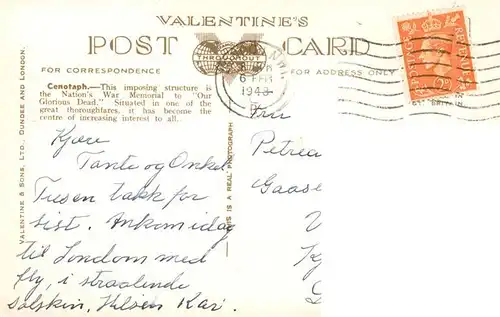 VALENTINE'S
POST CARD
FOR CORRESPONDENCE
FOR ADDRESS ONLY
THROUGHOUT
6 FEB
1948
POSTAGE REVENUE
Cenotaph.—This imposing structure is
the Nation's War Memorial to "Our
Glorious Dead." Situated in one of
the great thoroughfares, it has become the
centre of increasing interest to all.
VALENTINE & SONS, LTD., DUNDEE AND LONDON.
THIS IS A REAL PHOTOGRAPH
Kjære
Tante og Onkel
Tusen takk for
sist. Ankom idag
til London med
fly, i straalende
solskin, Hilsen Kari.
Fru
Petrea
Gaase